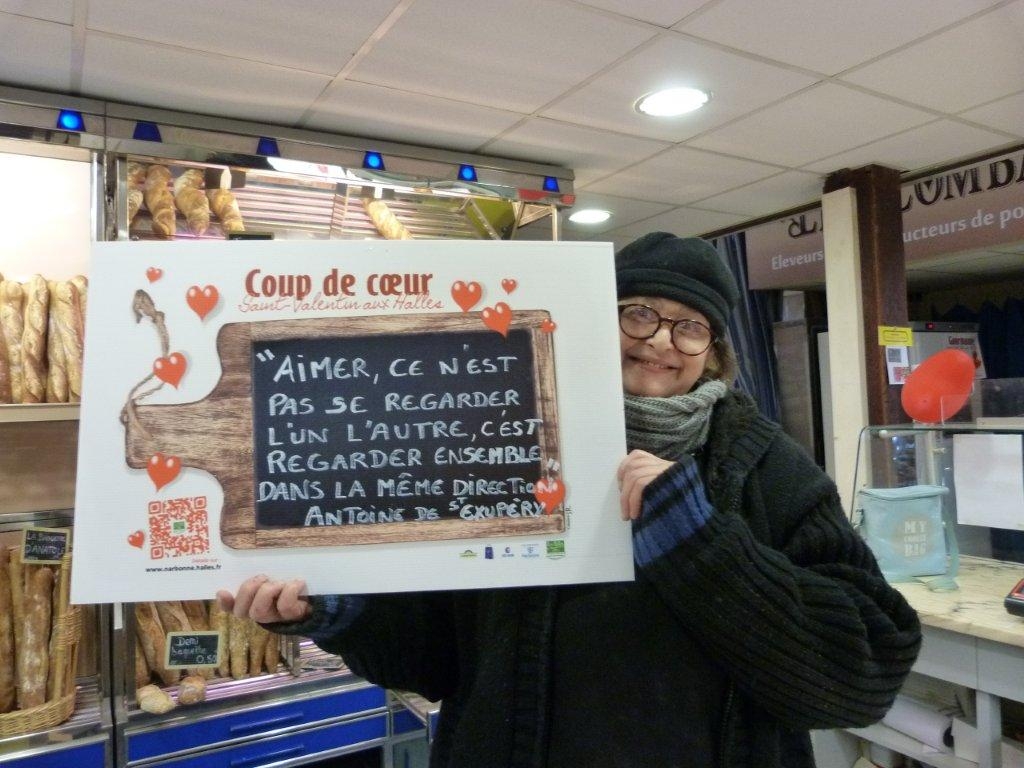 Coup de cœur
Saint-Valentin aux Halles
"AIMER, CE N'EST
PAS SE REGARDER
L'UN L'AUTRE, C'EST
REGARDER ENSEMBLE
DANS LA MÊME DIRECTION"
ANTOINE DE ST EXUPÉRY
www.narbonne.halles.fr
LA BAGUETTE
D'ANATOLE
Demi
baguette
0,50
Eleveurs
ucteurs de po
Gourmand
MY
COOKIE
BIG